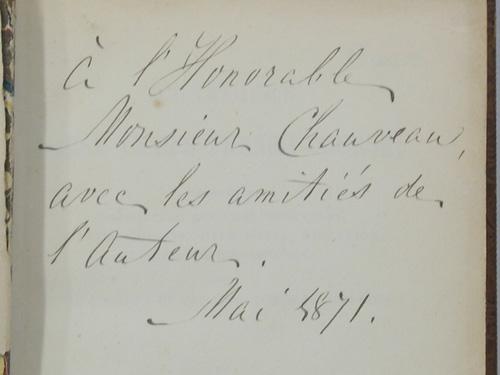 à l'Honorable
Monsieur Chauveau,
avec les amitiés de
l'Auteur.
Mai 1871.